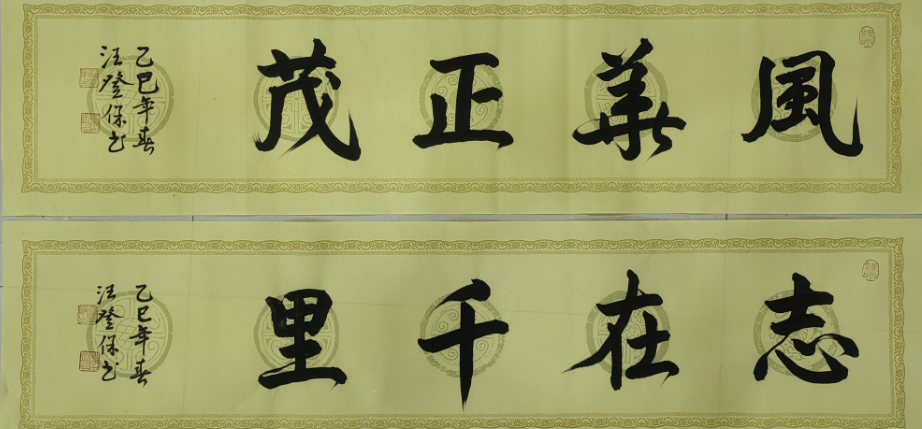 風華正茂
乙巳年春
汪登保书
志在千里
乙巳年春
汪登保书